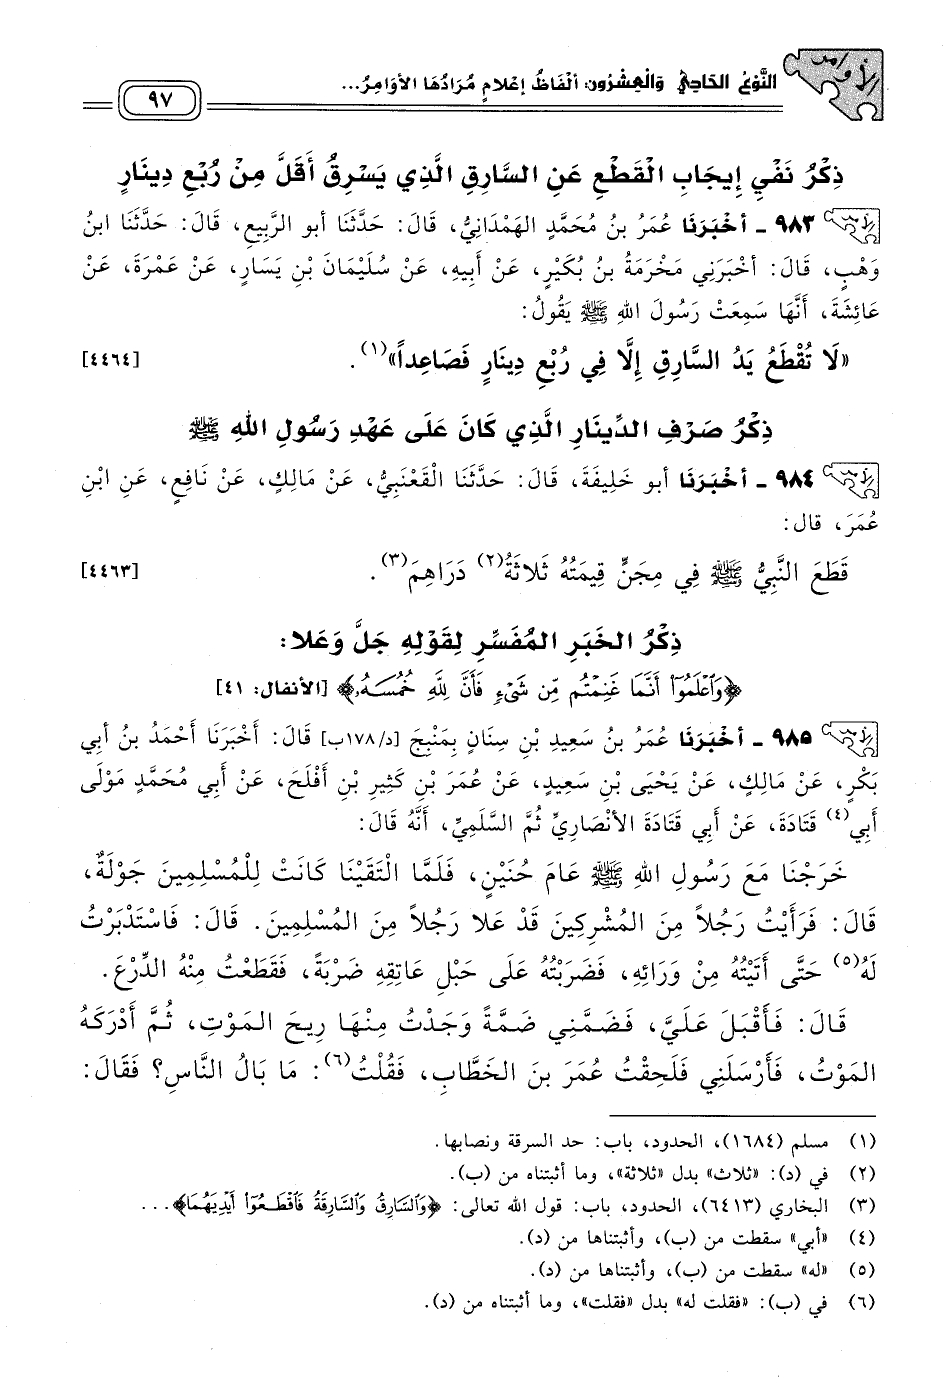 الأوامر
النَّوْعُ الحَادِي وَالْعِشْرُون: ألْفَاظُ إعْلامٍ مُرَادُهَا الأوَامِرُ...
٩٧
ذِكْرُ نَفْيِ إيجَابِ الْقَطْعِ عَنِ السَّارِقِ الَّذِي يَسْرِقُ أَقَلَّ مِنْ رُبْعِ دِينَارٍ
٩٨٣ - أخْبَرَنَا عُمَرُ بنُ مُحَمَّدٍ الهَمْدَانِيُّ، قَالَ: حَدَّثَنَا أبو الرَّبِيعِ، قَالَ: حَدَّثَنَا ابنُ
وَهْبٍ، قَالَ: أخْبَرَنِي مَخْرَمَةُ بنُ بُكَيْرٍ، عَنْ أَبِيهِ، عَنْ سُلَيْمَانَ بْنِ يَسَارٍ، عَنْ عَمْرَةَ، عَنْ
عَائِشَةَ، أَنَّهَا سَمِعَتْ رَسُولَ اللهِ ﷺ يَقُولُ:
«لَا تُقْطَعُ يَدُ السَّارِقِ إِلَّا فِي رُبْعِ دِينَارٍ فَصَاعِداً»(١). [٤٤٦٤]
ذِكْرُ صَرْفِ الدِّينَارِ الَّذِي كَانَ عَلَى عَهْدِ رَسُولِ اللهِ ﷺ
٩٨٤ - أخْبَرَنَا أبو خَلِيفَةَ، قَالَ: حَدَّثَنَا الْقَعْنَبِيُّ، عَنْ مَالِكٍ، عَنْ نَافِعٍ، عَنِ ابْنِ
عُمَرَ، قال:
قَطَعَ النَّبِيُّ ﷺ فِي مِجَنٍّ قِيمَتُهُ ثَلاثَةُ(٢) دَرَاهِمَ(٣). [٤٤٦٣]
ذِكْرُ الخَبَرِ المُفَسِّرِ لِقَوْلِهِ جَلَّ وَعَلا:
﴿وَٱعْلَمُوٓا۟ أَنَّمَا غَنِمْتُم مِّن شَىْءٍ فَأَنَّ لِلَّهِ خُمُسَهُۥ﴾ [الأنفال: ٤١]
٩٨٥ - أخْبَرَنَا عُمَرُ بنُ سَعِيدِ بْنِ سِنَانٍ بِمَنْبِجَ [د/١٧٨ب] قَالَ: أَخْبَرَنَا أَحْمَدُ بنُ أبي
بَكْرٍ، عَنْ مَالِكٍ، عَنْ يَحْيَى بْنِ سَعِيدٍ، عَنْ عُمَرَ بْنِ كَثِيرِ بْنِ أَفْلَحَ، عَنْ أَبِي مُحَمَّدٍ مَوْلَى
أَبِي(٤) قَتَادَةَ، عَنْ أَبِي قَتَادَةَ الأنْصَارِيِّ ثُمَّ السَّلَمِيِّ، أَنَّهُ قَالَ:
خَرَجْنَا مَعَ رَسُولِ اللهِ ﷺ عَامَ حُنَيْنٍ، فَلَمَّا الْتَقَيْنَا كَانَتْ لِلْمُسْلِمِينَ جَوْلَةٌ،
قَالَ: فَرَأَيْتُ رَجُلاً مِنَ المُشْرِكِينَ قَدْ عَلا رَجُلاً مِنَ المُسْلِمِينَ. قَالَ: فَاسْتَدْبَرْتُ
لَهُ(٥) حَتَّى أَتَيْتُهُ مِنْ وَرَائِهِ، فَضَرَبْتُهُ عَلَى حَبْلِ عَاتِقِهِ ضَرْبَةً، فَقَطَعْتُ مِنْهُ الدِّرْعَ.
قَالَ: فَأَقْبَلَ عَلَيَّ، فَضَمَّنِي ضَمَّةً وَجَدْتُ مِنْهَا رِيحَ المَوْتِ، ثُمَّ أَدْرَكَهُ
المَوْتُ، فَأَرْسَلَنِي فَلَحِقْتُ عُمَرَ بنَ الخَطَّابِ، فَقُلْتُ(٦): مَا بَالُ النَّاسِ؟ فَقَالَ:
(١) مسلم (١٦٨٤)، الحدود، باب: حد السرقة ونصابها.
(٢) في (د): «ثلاث» بدل «ثلاثة»، وما أثبتناه من (ب).
(٣) البخاري (٦٤١٣)، الحدود، باب: قول الله تعالى: ﴿وَٱلسَّارِقُ وَٱلسَّارِقَةُ فَٱقْطَعُوٓا۟ أَيْدِيَهُمَا﴾...
(٤) «أبي» سقطت من (ب)، وأثبتناها من (د).
(٥) «له» سقطت من (ب)، وأثبتناها من (د).
(٦) في (ب): «فقلت له» بدل «فقلت»، وما أثبتناه من (د).